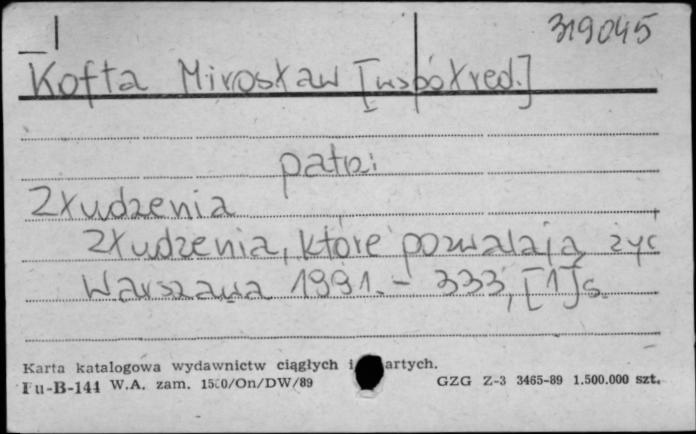 319045
Kofta Mirosław [współred.]
patrz:
Złudzenia
Złudzenia, które pozwalają żyć
Warszawa 1991. - 333, [1] s.
Karta katalogowa wydawnictw ciągłych i artych.
Pu-B-144 W.A. zam. 1500/On/DW/89 GZG Z-3 3465-89 1.500.000 szt.